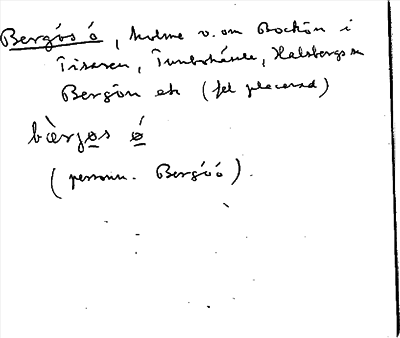 Bergós ó, holme v. om Bockön i
Tisaren, Tunbohåzele, Halsbergs sn
Bergön ek (fel placerad)
bærgos ó
(personn. Bergóó).